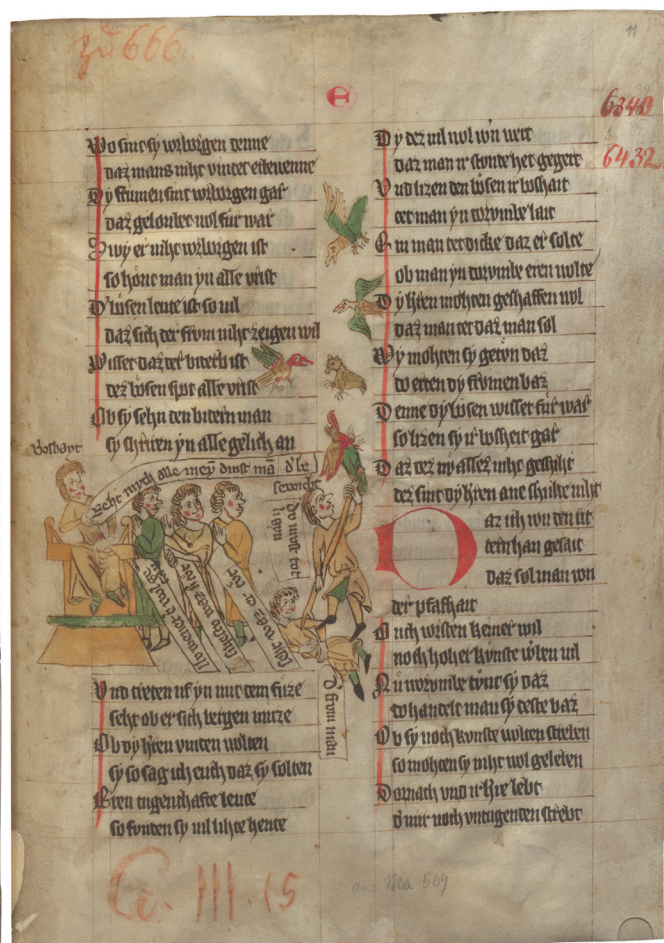 zu 666.
11
e
6340
6432
Wo sint sy vorborgen denne
daz mans niht vindet etewenne
Dy frumen sint vorborgen gar
daz geloubet wol fur war
Swy er niht vorborgen ist
so hont man yn alle vrist
D' bosen leute ist so vil
daz sich der from niht zeigen wil
Wisset daz der biderb ist
der bosen spot alle vrist
Ob sy sehn den bidern man
sy schrien yn alle gelich an
Boshayt
Seht mych alle mey dinst ma
d' bosewicht
du must tot ligen
d' frum man
Und treten uf yn mit dem fuze
seht ob er sich bergen muze
Ob dy hren vinden wolten
sy so sag ich euch daz sy solten
Eren tugenthafte leute
so funden sy vil lihte heute
Dy der wil wol von wert
daz man ir stunde het gegert
Und lizen den bosen ir boshait
tet man yn dorumbe lait
Ein man tet dicke daz er solte
ob man yn dorumbe eren wolte
Dy hren mohten geschaffen wol
daz man tet daz man sol
Wy mohten sy geton daz
do erten dy frumen baz
Denne dy bosen wisset fur war
so lizen sy ir bosheit gar
Daz der ny allez niht geschiht
der sint dy hren ane schulde niht
Daz ich von den lit
tein han gesait
daz sol man von
der pfafhait
Ouch wisten keiner wil
noch hoher kunste wlen vil
Nu worumbe tunt sy daz
do handelt man sy deste baz
Ob sy noch kunste wolten streben
so mohten sy niht wol geleben
Dornach und ir hre lebt
d' nur noch untugenden strebt
Co. III. 15
aus Ms. 509